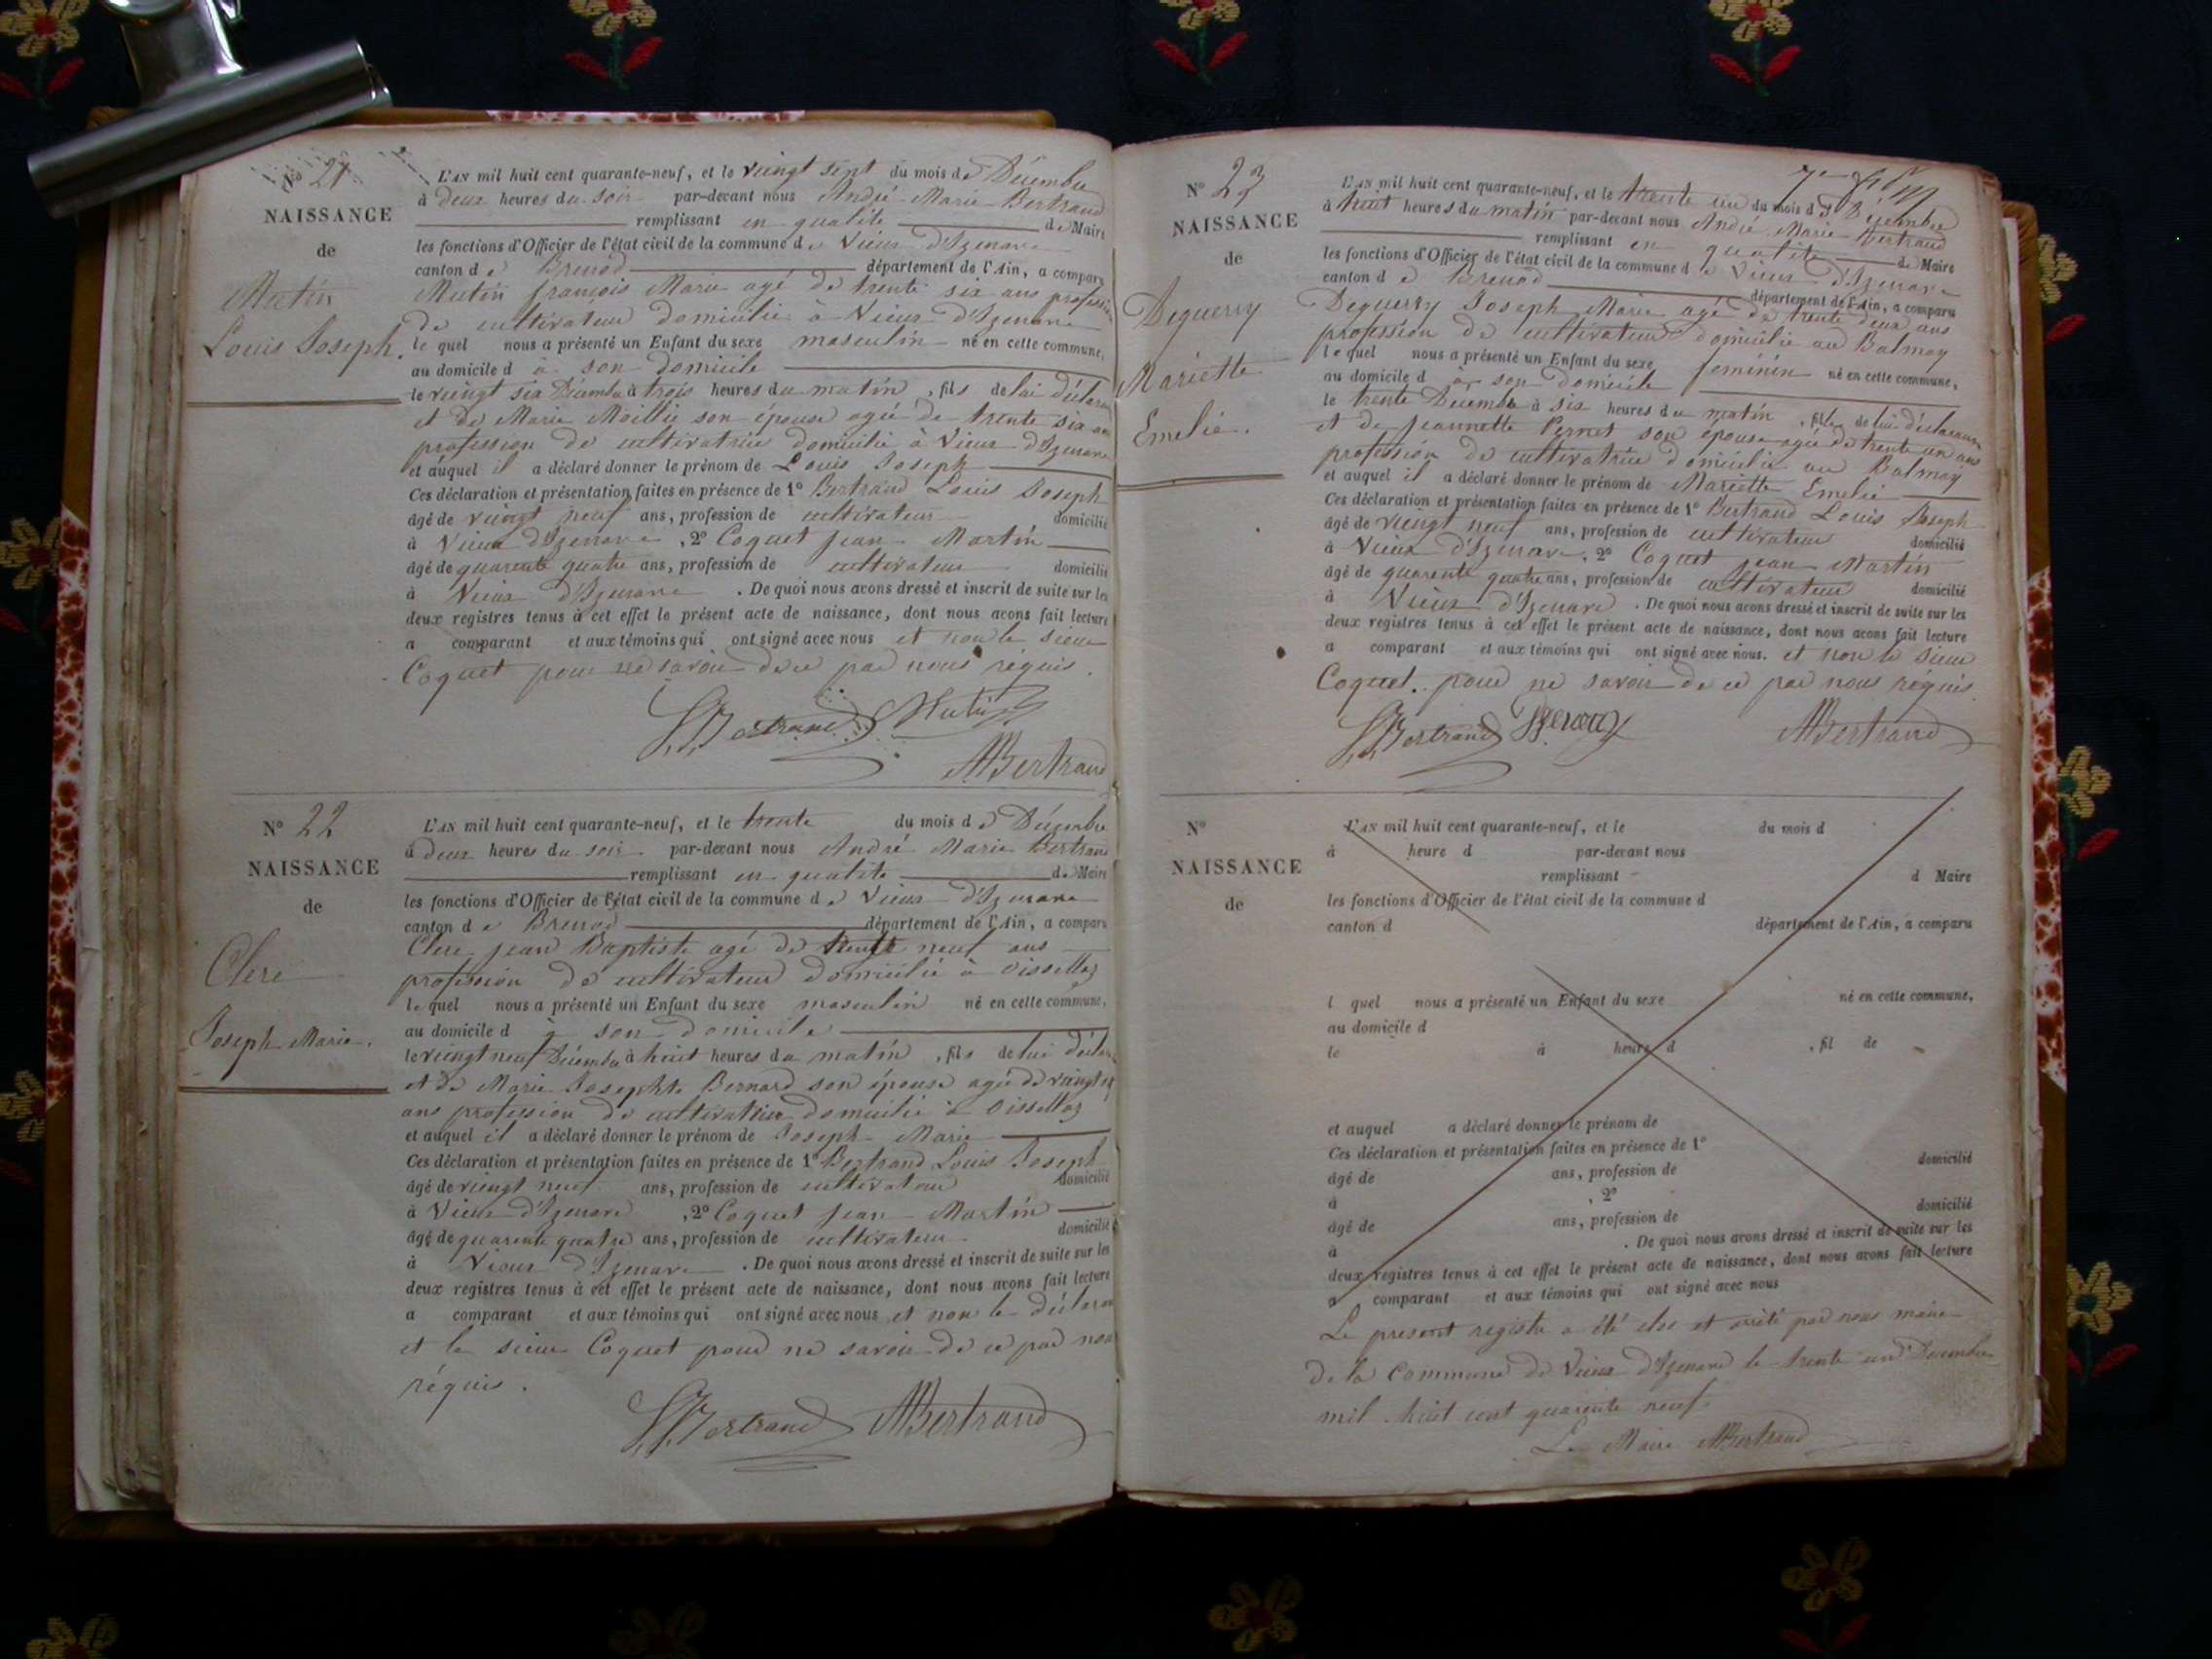 N° 21
NAISSANCE
de
Mutin
Louis Joseph.
L'AN mil huit cent quarante-neuf, et le vingt sept du mois de Décembre
à deux heures du soir par-devant nous André Marie Bertrand
remplissant en qualité de Maire
les fonctions d'Officier de l'état civil de la commune de Vieux d'Izenave
canton de Brenod département de l'Ain, a comparu
Mutin françois Marie agé de trente six ans profession
de cultivateur domicilié à Vieux d'Izenave
lequel nous a présenté un Enfant du sexe masculin né en cette commune,
au domicile d à son domicile
le vingt six Décembre à trois heures du matin, fils de lui déclarant
et de Marie Moillié son épouse agée de trente six ans
profession de cultivatrice domicilié à Vieux d'Izenave
et auquel il a déclaré donner le prénom de Louis Joseph
Ces déclaration et présentation faites en présence de 1° Bertrand Louis Joseph
âgé de vingt neuf ans, profession de cultivateur domicilié
à Vieux d'Izenave, 2° Coquet jean Martin
âgé de quarente quatre ans, profession de cultivateur domicilié
à Vieux d'Izenave. De quoi nous avons dressé et inscrit de suite sur les
deux registres tenus à cet effet le présent acte de naissance, dont nous avons fait lecture
a comparant et aux témoins qui ont signé avec nous et non le sieur
Coquet pour ne savoir de ce par nous réquis.
Bertrand Mutin
AMBertrand
N° 22
NAISSANCE
de
Clere
Joseph Marie.
L'AN mil huit cent quarante-neuf, et le trente du mois de Décembre
à deux heures du soir par-devant nous André Marie Bertrand
remplissant en qualité de Maire
les fonctions d'Officier de l'état civil de la commune de Vieux d'Izenave
canton de Brenod département de l'Ain, a comparu
Clere jean Baptiste agé de trente neuf ans
profession de cultivateur domicilié à Oissellaz
lequel nous a présenté un Enfant du sexe masculin né en cette commune,
au domicile d à son domicile
le vingt neuf Décembre à huit heures du matin, fils de lui déclarant
et de Marie Josephte Bernard son épouse agée de vingt
ans profession de cultivatrice domicilié à Oissellaz
et auquel il a déclaré donner le prénom de Joseph Marie
Ces déclaration et présentation faites en présence de 1° Bertrand Louis Joseph
âgé de vingt neuf ans, profession de cultivateur domicilié
à Vieux d'Izenave, 2° Coquet jean Martin
âgé de quarente quatre ans, profession de cultivateur domicilié
à Vieux d'Izenave. De quoi nous avons dressé et inscrit de suite sur les
deux registres tenus à cet effet le présent acte de naissance, dont nous avons fait lecture
a comparant et aux témoins qui ont signé avec nous et non le déclarant
et le sieur Coquet pour ne savoir de ce par nous
réquis.
Bertrand AMBertrand
N° 23
NAISSANCE
de
Deguerry
Mariette
Emelie.
L'AN mil huit cent quarante-neuf, et le trente un du mois de Décembre
à huit heures du matin par-devant nous André Marie Bertrand
remplissant en qualité de Maire
les fonctions d'Officier de l'état civil de la commune de Vieux d'Izenave
canton de Brenod département de l'Ain, a comparu
Deguerry Joseph Marie agé de trente deux ans
profession de cultivateur domicilié au Balmay
lequel nous a présenté un Enfant du sexe feminin né en cette commune,
au domicile d à son domicile
le trente Décembre à six heures du matin, fille de lui déclarant
et de jeannette Pernet son épouse agée de trente un ans
profession de cultivatrice domicilié au Balmay
et auquel il a déclaré donner le prénom de Mariette Emelie
Ces déclaration et présentation faites en présence de 1° Bertrand Louis Joseph
âgé de vingt neuf ans, profession de cultivateur domicilié
à Vieux d'Izenave, 2° Coquet jean Martin
âgé de quarente quatre ans, profession de cultivateur domicilié
à Vieux d'Izenave. De quoi nous avons dressé et inscrit de suite sur les
deux registres tenus à cet effet le présent acte de naissance, dont nous avons fait lecture
a comparant et aux témoins qui ont signé avec nous. et non le sieur
Coquet. pour ne savoir de ce par nous réquis
Bertrand AMBertrand
N°
NAISSANCE
de
L'AN mil huit cent quarante-neuf, et le du mois d
à heure d par-devant nous
remplissant d Maire
les fonctions d'Officier de l'état civil de la commune d
canton d département de l'Ain, a comparu
l quel nous a présenté un Enfant du sexe né en cette commune,
au domicile d
le à heure d , fil de
et auquel a déclaré donner le prénom de
Ces déclaration et présentation faites en présence de 1°
âgé de ans, profession de domicilié
à , 2°
âgé de ans, profession de domicilié
à . De quoi nous avons dressé et inscrit de suite sur les
deux registres tenus à cet effet le présent acte de naissance, dont nous avons fait lecture
a comparant et aux témoins qui ont signé avec nous
Le present registre a été clos et arrêté par nous maire
de la commune de Vieux d'Izenave le trente un Décembre
mil huit cent quarente neuf.
Le Maire AMBertrand